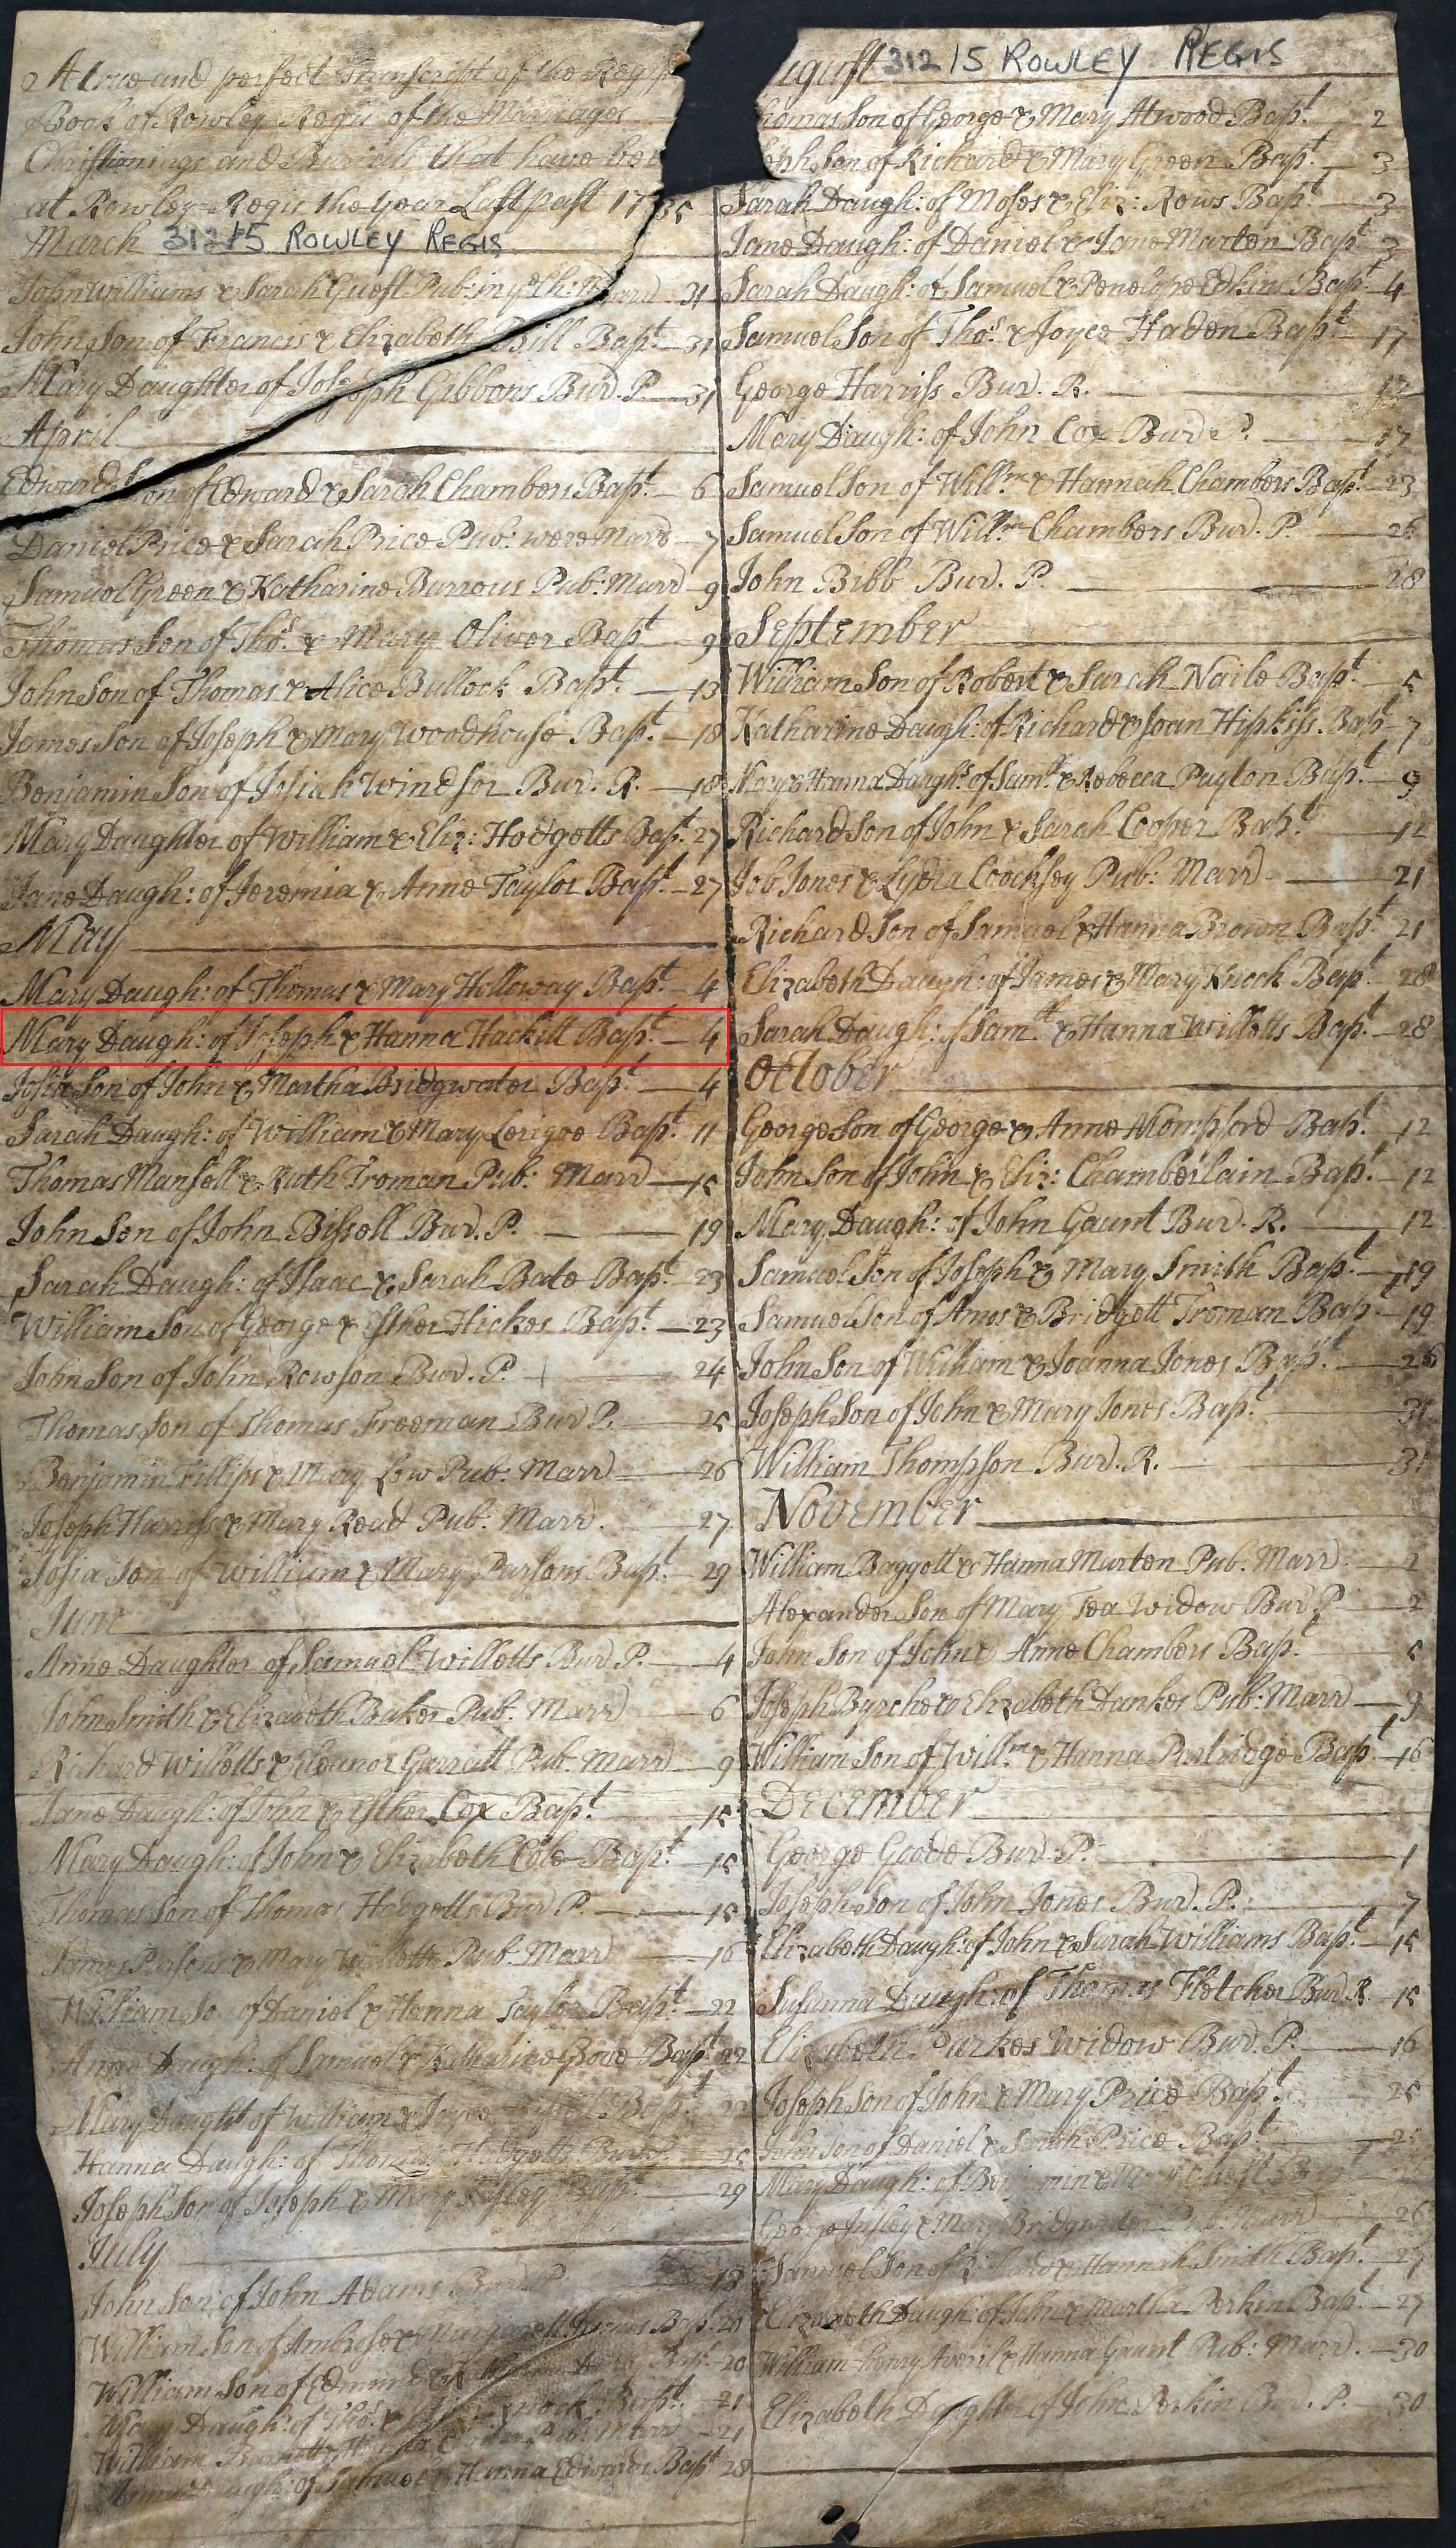 A true and perfect Transcript of the Regist
Book of Rowley Regis of the Marriages
Christianings and Burials that have be
at Rowley Regis the year Last past 1735
March 31215 ROWLEY REGIS
John Williams & Sarah Guest Pub: in ye Ch: Marrd 31
John Son of Francis & Elizabeth Bapt. 31
Mary Daughter of Joseph Gibbons Bur. P. 31
April
Edward Son of Edward & Sarah Chambers Bapt. 6
Daniel Price & Sarah Price Pub: were Marrd 7
Samuel Green & Katharine Burrous Pub: Marrd 9
Thomas Son of Thos. & Mary Oliver Bapt. 9
John Son of Thomas & Alice Bullock Bapt. 13
James Son of Joseph & Mary Woodhouse Bapt. 18
Benjamin Son of Josiah Windsor Bur. R. 18
Mary Daughter of William & Eliz: Hodgetts Bapt. 27
Jane Daugh: of Jeremia & Anne Taylor Bapt. 27
May
Mary Daugh: of Thomas & Mary Holloway Bapt. 4
Mary Daugh: of Joseph & Hanna Hackitt Bapt. 4
Josia Son of John & Martha Bridgwater Bapt. 4
Sarah Daugh: of William & Mary Lerigoe Bapt. 11
Thomas Mansell & Ruth Troman Pub: Marrd 15
John Son of John Bissell Bur. P. 19
Sarah Daugh: of Isaac & Sarah Bate Bapt. 23
William Son of George & Esther Hickes Bapt. 23
John Son of John Rowson Bur. P. 24
Thomas Son of Thomas Freeman Bur P. 25
Benjamin Fillips & Mary Low Pub: Marrd 26
Joseph Harriss & Mary Read Pub: Marrd. 27
Josia Son of William & Mary Parsons Bapt. 29
June
Anne Daughter of Samuel Willetts Bur P. 4
John Smith & Elizabeth Baker Pub: Marrd 6
Richard Willetts & Eleanor Garratt Pub: Marrd 9
Jane Daugh: of John & Esther Cox Bapt. 15
Mary Daugh: of John & Elizabeth Cole Bapt. 15
Thomas Son of Thomas Hodgetts Bur P. 15
James Parsons & Mary Willetts Pub: Marrd 16
William So of Daniel & Hanna Taylor Bapt. 22
Anne Daugh: of Samuel & Katharine Grove Bapt. 22
Mary Daught of William & Joyce Bapt. 22
Hanna Daugh: of Thomas Hodgetts Bur P. 25
Joseph Son of Joseph & Mary Bapt. 29
July
John Son of John Adams Bur P. 19
William Son of Ambrose & Margarett Bapt. 20
William Son of Edmund & Bapt. 20
Mary Daugh: of Thos. & Bapt. 21
William & Pub: Marrd 21
Daugh: of Samuel & Hanna Edwards Bapt 28
ugust 31215 ROWLEY REGIS
homas Son of George & Mary Atwood Bapt. 2
seph Son of Richard & Mary Green Bapt. 3
Sarah Daugh: of Moses & Eliz: Rows Bapt. 3
Jane Daugh: of Daniel & Jane Marten Bapt 3
Sarah Daugh: of Samuel & Penelope Edkins Bapt. 4
Samuel Son of Thos. & Joyce Haden Bapt. 17
George Harriss Bur. R. 17
Mary Daugh: of John Cox Bur P. 17
Samuel Son of Willm. & Hannah Chambers Bapt. 23
Samuel Son of Willm. Chambers Bur. P. 26
John Bibb Bur. P. 28
September
William Son of Robert & Sarah Naile Bapt. 5
Katharine Daugh: of Richard & Joan Hipkiss. Bapt 7
Mary & Hanna Daughs. of Samll. & Rebecca Payton Bapt. 9
Richard Son of John & Sarah Cooper Bapt. 12
Job Jones & Lydia Coocksey Pub: Marrd 21
Richard Son of Samuel & Hanna Brown Bapt. 21
Elizabeth Daugh: of James & Mary Bapt. 28
Sarah Daugh: of Samll. & Hanna Willetts Bapt. 28
October
George Son of George & Anne Mompford Bapt. 12
John Son of John & Eliz: Chamberlain Bapt. 12
Mary Daugh: of John Gaunt Bur. R. 12
Samuel Son of Joseph & Mary Smith Bapt. 19
Samuel Son of Amos & Bridgett Troman Bapt 19
John Son of William & Joanna Jones Bapt. 26
Joseph Son of John & Mary Jones Bapt. 31
William Thompson Bur. R. 31
November
William Baggott & Hanna Marten Pub: Marrd 2
Alexander Son of Mary Tea Widow Bur P. 2
John Son of John & Anne Chambers Bapt. 5
Joseph Byrche & Elizabeth Dankes Pub: Marrd 9
William Son of Willm. & Hanna Partridge Bapt. 16
December
George Goode Bur. P. 1
Joseph Son of John Jones Bur. P. 7
Elizabeth Daugh: of John & Sarah Williams Bapt. 15
Susanna Daugh: of Thomas Fletcher Bur R. 15
Elizabeth Purkes Widow Bur. P. 16
Joseph Son of John & Mary Price Bapt. 25
John Son of Daniel & Sarah Price Bapt.
Mary Daugh: of Benjamin & Mary
George Insley & Mary Bridgwater Pub: Marrd 26
Samuel Son of Richard & Hannah Smith Bapt. 27
Elizabeth Daugh: of John & Martha Perkin Bapt. 27
William Henry Averil & Hanna Gaunt Pub: Marrd. 30
Elizabeth Daughter of John Perkin Bur. P. 30